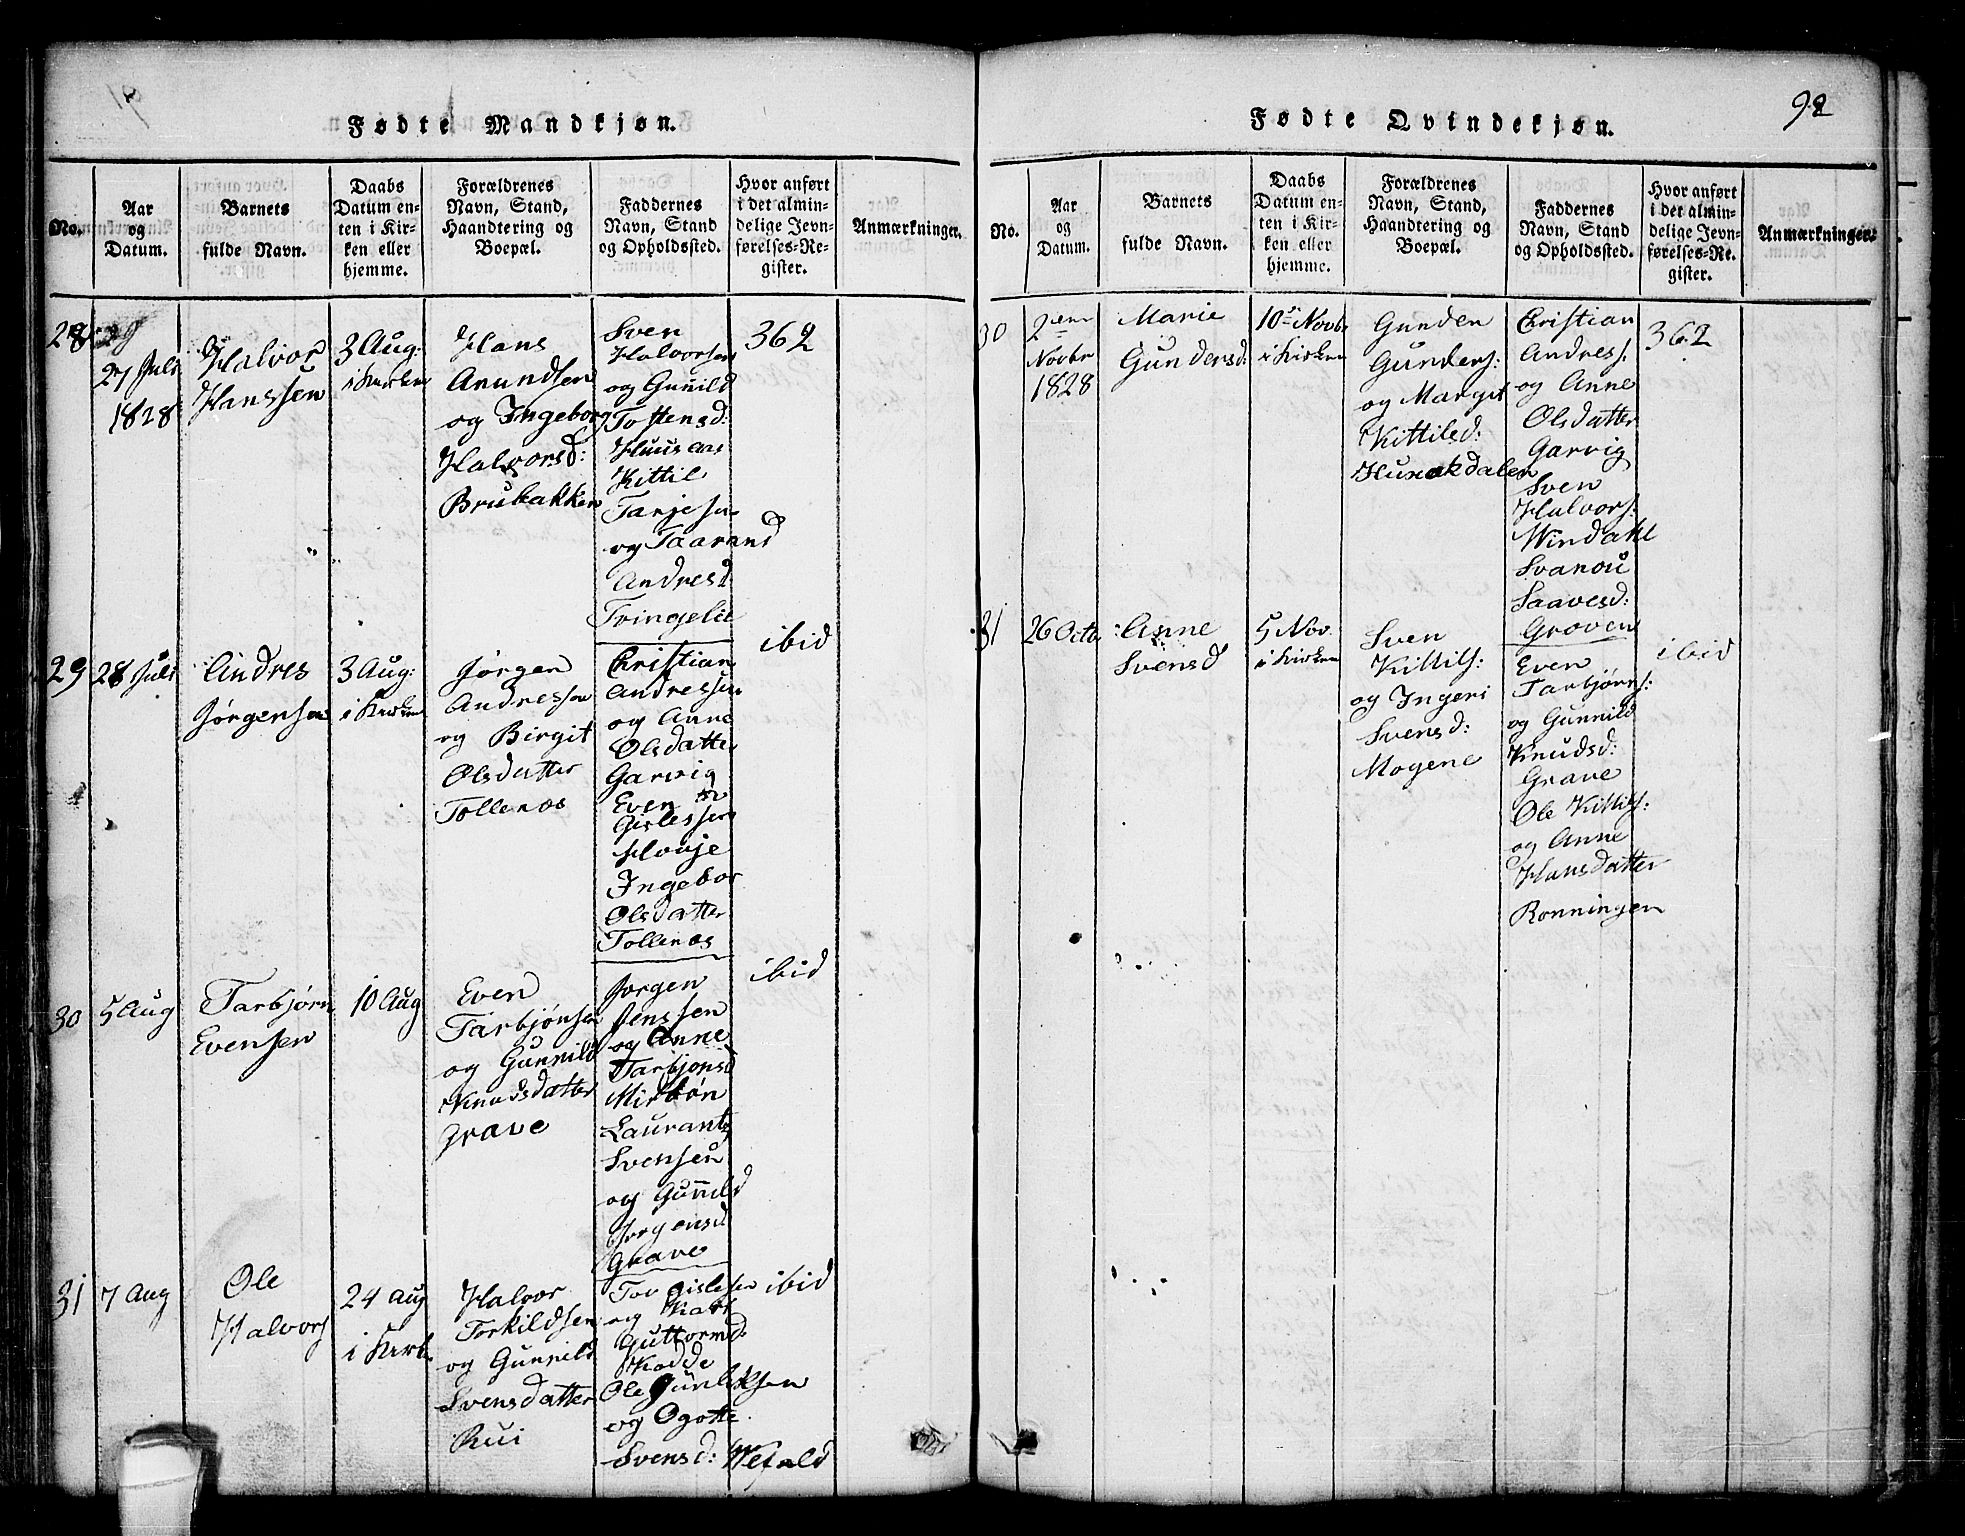 Fødte Mandkjøn.
No.
Aar
og
Datum.
Barnets
fulde Navn.
Daabs
Datum en-
ten i Kir-
ken eller
hjemme.
Forældrenes
Navn, Stand,
Haandtering og
Boepæl.
Faddernes
Navn, Stand
og Opholdssted.
Hvor anført
i det almin-
delige Jevn-
førelses-Re-
gister.
Anmærkninger.
28
27 Juli
1828
Halvor
Hanssen
3 Aug:
i Kirken
Hans
Amundsen
og Ingeborg
Halvorsd:
Brubakken
Sven
Halvorsen
og Gunild
Tostensd:
Huusaas
Kittil
Tarjesen
og Taarand
Andresd
Tringelie
362
29
28 Juli
Andres
Jørgensen
3 Aug:
i Kirken
Jørgen
Andressen
og Birgit
Olsdatter
Tollenæs
Christian
Andressen
og Anne
Olsdatter
Garvig
Even
Gislessen
Hovije
Ingebor
Olsdatter
Tollenæs
ibid
30
5 Aug
Tarbjørn
Evensen
10 Aug
Even
Tarbjønsen
og Gunnild
Knudsdatter
Grave
Jørgen
Jenssen
og Anne
Tarbjonsd
Mirbøn
Laurantz
Svensen
og Gunild
Jorgensd
Grave
ibid
31
7 Aug
Ole
Halvors
24 Aug
i Kirk
Halvor
Torkildsen
og Gunnild
Svensdatter
Rui
Tov Gislesen
og Kari
Guttormd:
Kodde
Ole Gunleksen
og Ogotte
Svensd:
ibid
Fødte Qvindekjøn.
92
No.
Aar
og
Datum.
Barnets
fulde Navn.
Daabs
Datum en-
ten i Kir-
ken eller
hjemme.
Forældrenes
Navn, Stand,
Haandtering og
Boepæl.
Faddernes
Navn, Stand
og Opholdssted.
Hvor anført
i det almin-
delige Jevn-
førelses-Re-
gister.
Anmærkninger.
30
2den
Novbr
1828
Marie
Gundersd:
10de Novbr
i Kirken
Gunder
Gunders:
og Margit
Kittilsd:
Hunakdalen
Christian
Andress.
og Anne
Olsdatter
Garvig
Sven
Halvors:
Windahl
Svanou
Saavesd:
Groven
362
31
26 Octb
Anne
Svensd
5 Nov.
i Kirken
Sven
Kittils:
og Ingeri
Svensd:
Mogene
Even
Tarbjørns:
og Gunnild
Knudsd:
Grave
Ole Kittils:
og Anne
Hansdatter
Ronningen
ibid